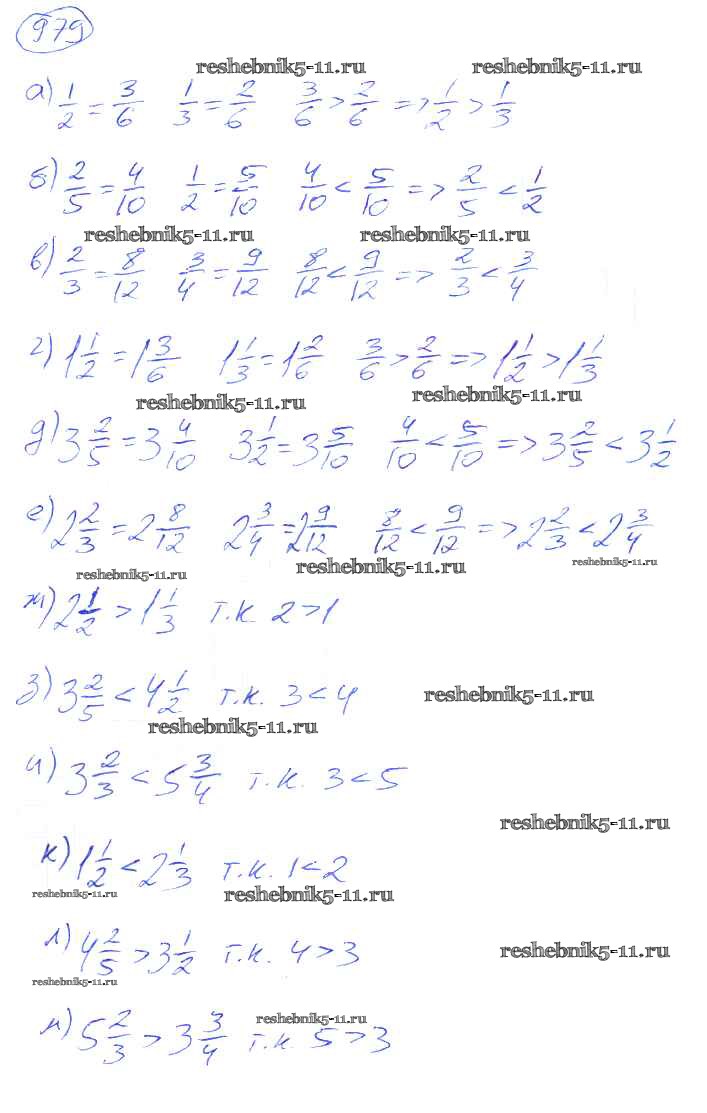 979
reshebnik5-11.ru reshebnik5-11.ru
а) 1/2 = 3/6 1/3 = 2/6 3/6 > 2/6 => 1/2 > 1/3
б) 2/5 = 4/10 1/2 = 5/10 4/10 < 5/10 => 2/5 < 1/2
reshebnik5-11.ru reshebnik5-11.ru
в) 2/3 = 8/12 3/4 = 9/12 8/12 < 9/12 => 2/3 < 3/4
г) 1 1/2 = 1 3/6 1 1/3 = 1 2/6 3/6 > 2/6 => 1 1/2 > 1 1/3
reshebnik5-11.ru reshebnik5-11.ru
д) 3 2/5 = 3 4/10 3 1/2 = 3 5/10 4/10 < 5/10 => 3 2/5 < 3 1/2
е) 2 2/3 = 2 8/12 2 3/4 = 2 9/12 8/12 < 9/12 => 2 2/3 < 2 3/4
reshebnik5-11.ru reshebnik5-11.ru reshebnik5-11.ru
ж) 2 1/2 > 1 1/3 т.к 2 > 1
з) 3 2/5 < 4 1/2 т.к. 3 < 4 reshebnik5-11.ru
reshebnik5-11.ru
и) 3 2/3 < 5 3/4 т.к. 3 < 5
reshebnik5-11.ru
к) 1 1/2 < 2 1/3 т.к. 1 < 2
reshebnik5-11.ru reshebnik5-11.ru
л) 4 2/5 > 3 1/2 т.к. 4 > 3 reshebnik5-11.ru
reshebnik5-11.ru
reshebnik5-11.ru
м) 5 2/3 > 3 3/4 т.к. 5 > 3